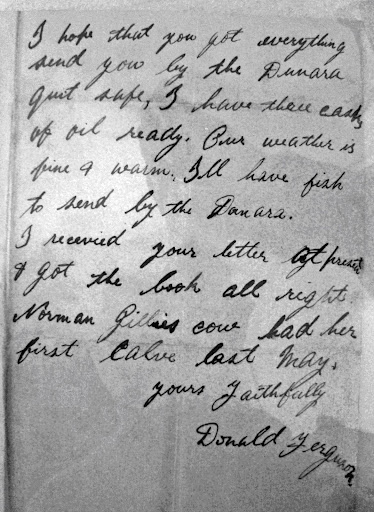 I hope that you got everything
send you by the Dunara
quit safe, I have three casks
of oil ready. Our weather is
fine & warm. I'll have fish
to send by the Dunara.
I recevied your letter at present
& got the book all right.
Norman Gillies cow had her
first Calve last May.
yours Faithfully
Donald Ferguson